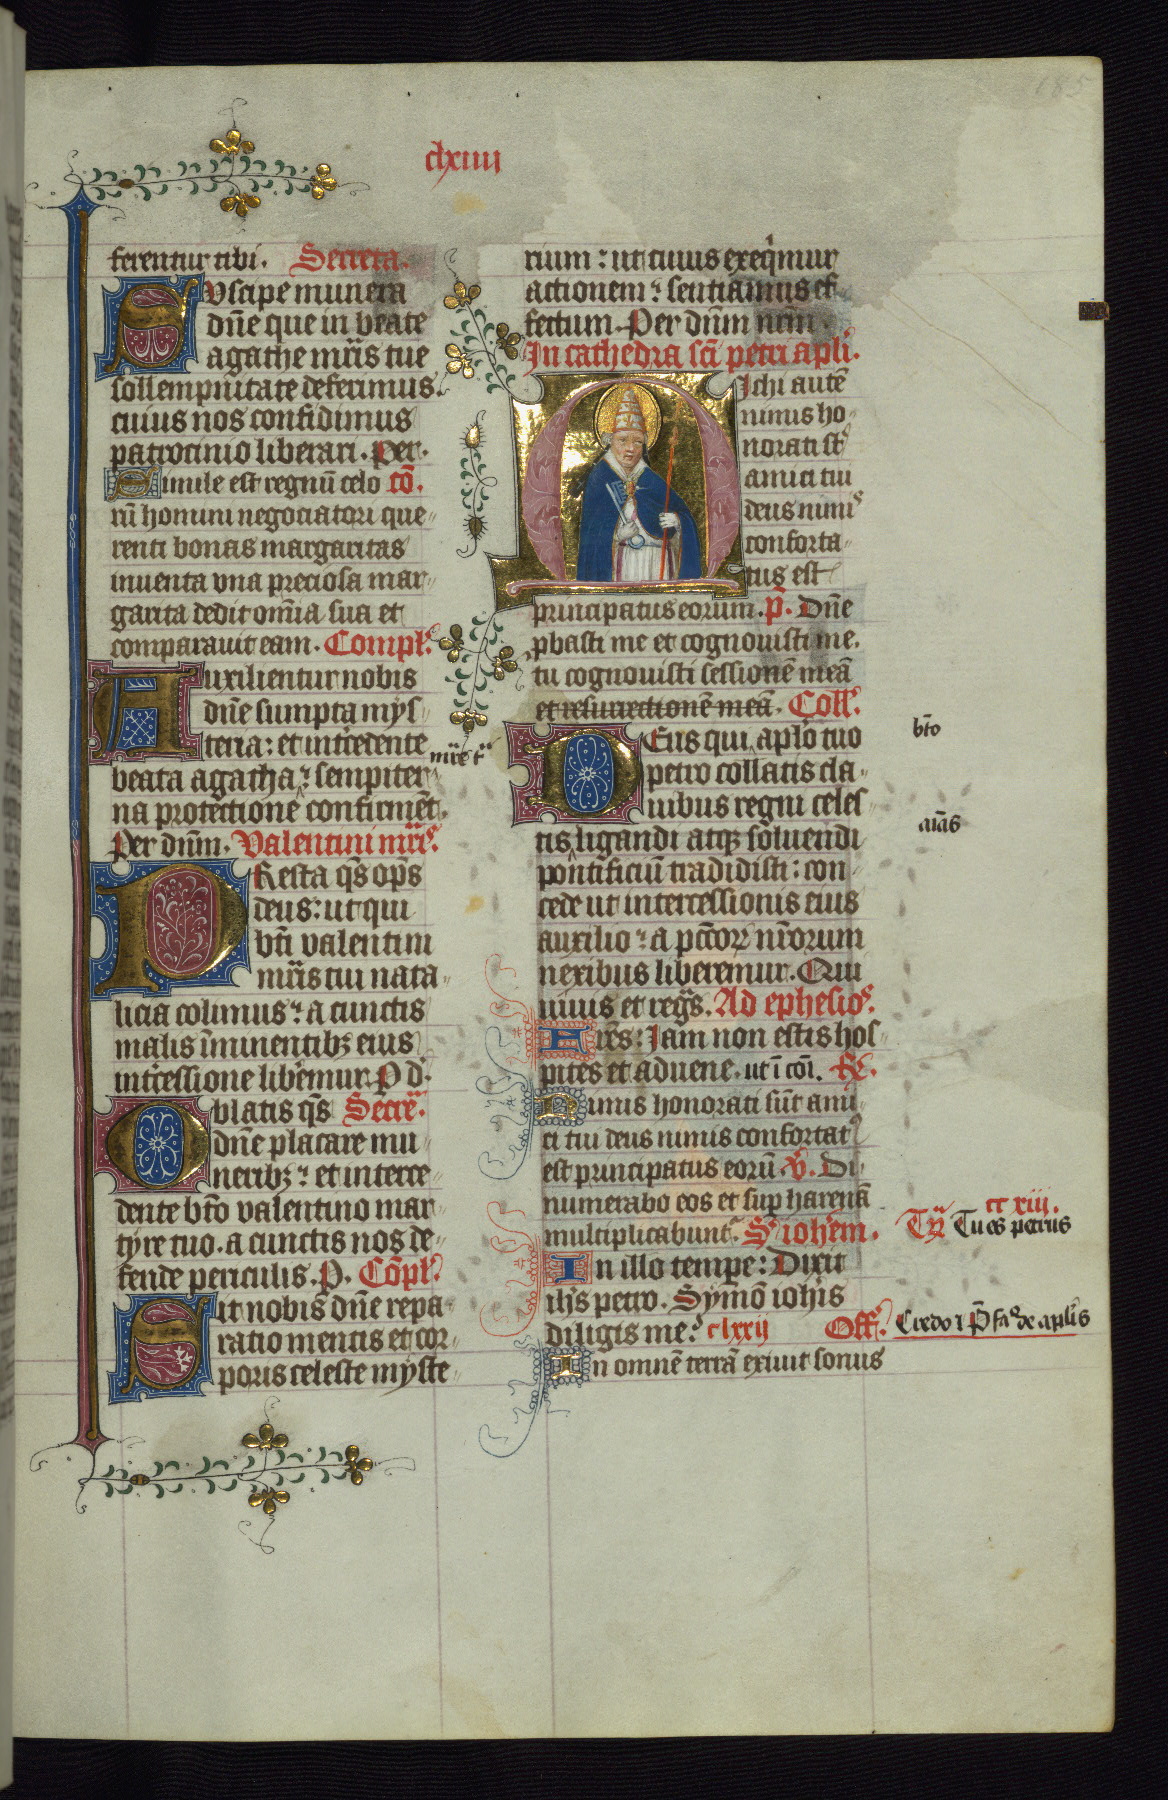 185
clxiiii
ferentur tibi. Secreta.
Suscipe munera
dñe que in beate
agathe mris tue
sollempnitate deferimus.
cuius nos confidimus
patrocinio liberari. Per.
Simile est regnū celo cō.
rū homini negociatori que
renti bonas margaritas
inventa una preciosa mar
garita dedit om̄ia sua et
comparauit eam. Compl.
Auxilientur nobis
dñe sumpta mys
teria: et intercedente
beata agatha mr̄e t̄ sempiter
na protectione confirment.
Per dñm. Valentini mr̄is.
PResta q̄s op̄s
deus: ut qui
bt̄i valentini
mr̄is tui nata
licia colimus: a cunctis
malis īminentibꝫ eius
intercessione liberemur. P d.
Oblatis q̄s Secre.
dñe placare mu
neribꝫ: et interce
dente bt̄o valentino mar
tyre tuo. a cunctis nos de
fende periculis. P. Cōpl.
Sit nobis dñe repa
ratio mentis et cor
poris celeste myste
rium: ut cuius exeqimur
actionem: sentiamus ef
fectum. Per dñm nr̄m.
In cathedra sc̄i petri apl̄i.
Michi autē
nimis ho
norati st̄
amici tui
deus nimis
conforta
tus est
principatus eorum. p̄. Dñe
pbasti me et cognouisti me.
tu cognouisti sessionē meā
et resurrectionē meā. Coll.
DEus qui apl̄o tuo
bt̄o
petro collatis cla
uibus regni celes
tis ligandi atqꝫ soluendi
aīas
pontificiū tradidisti: con
cede ut intercessionis eius
auxilio: a pc̄c̄oꝝ nr̄orum
nexibus liberemur. Qui
uiuis et regs. Ad ephesios.
Fres: Iam non estis hos
pites et aduene. ut ī cōi. R̄.
Nimis honorati sūt ami
ci tui deus nimis confortat
est principatus eorū. V̄. Di
numerabo eos et sup harenā
multiplicabunt. S iohem.
cc xiii.
Tr̄ Tu es petrus
In illo tempe: Dixit
ih̄s petro. Symō ioh̄is
diligis me? clxxij Off.
Credo ⁊ p̄fa de apl̄is
In omnē terrā exiuit sonus